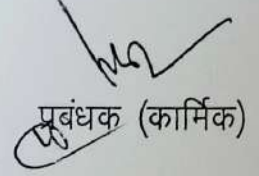 प्रबंधक (कार्मिक)